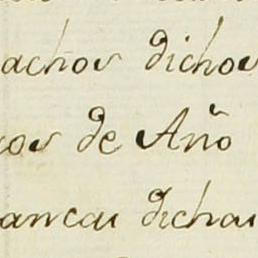 achos dichos
cos de Año
ancas dichas